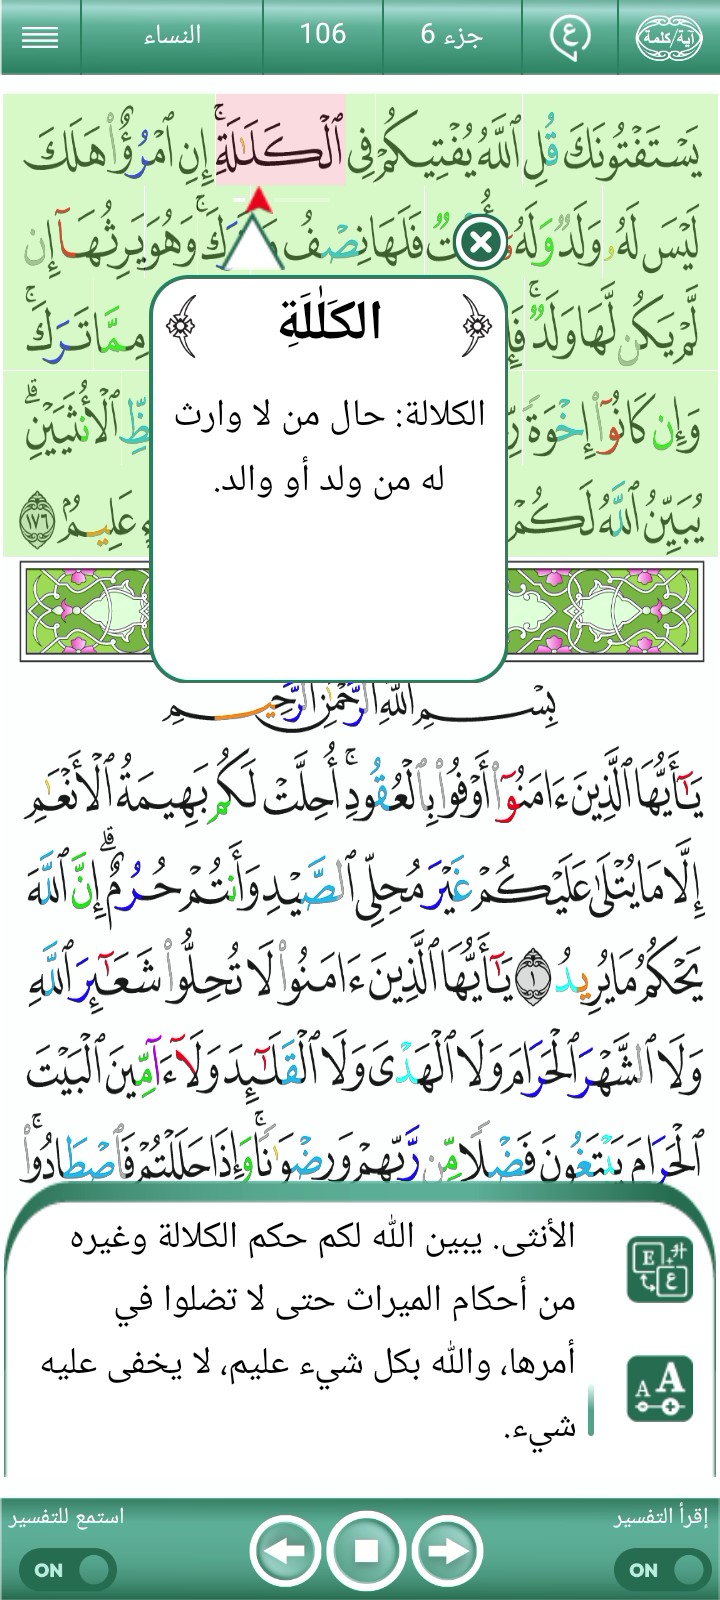 آية/كلمة
ع
جزء 6
106
النساء
يَسْتَفْتُونَكَ قُلِ ٱللَّهُ يُفْتِيكُمْ فِى ٱلْكَلَـٰلَةِ ۚ إِنِ ٱمْرُؤٌا۟ هَلَكَ
لَيْسَ لَهُۥ وَلَدٌ وَلَهُۥٓ فَلَهَا نِصْفُ وَهُوَ يَرِثُهَآ إِن
لَّمْ يَكُن لَّهَا وَلَدٌ ۚ مِمَّا تَرَكَ ۚ
وَإِن كَانُوٓا۟ إِخْوَةً ٱلْأُنثَيَيْنِ ۗ
يُبَيِّنُ ٱللَّهُ لَكُمْ عَلِيمٌۢ ١٧٦
الكَلَٰلَةِ
الكلالة: حال من لا وارث
له من ولد أو والد.
بِسْمِ ٱللَّهِ ٱلرَّحْمَـٰنِ ٱلرَّحِيمِ
يَـٰٓأَيُّهَا ٱلَّذِينَ ءَامَنُوٓا۟ أَوْفُوا۟ بِٱلْعُقُودِ ۚ أُحِلَّتْ لَكُم بَهِيمَةُ ٱلْأَنْعَـٰمِ
إِلَّا مَا يُتْلَىٰ عَلَيْكُمْ غَيْرَ مُحِلِّى ٱلصَّيْدِ وَأَنتُمْ حُرُمٌ ۗ إِنَّ ٱللَّهَ
يَحْكُمُ مَا يُرِيدُ ١ يَـٰٓأَيُّهَا ٱلَّذِينَ ءَامَنُوا۟ لَا تُحِلُّوا۟ شَعَـٰٓئِرَ ٱللَّهِ
وَلَا ٱلشَّهْرَ ٱلْحَرَامَ وَلَا ٱلْهَدْىَ وَلَا ٱلْقَلَـٰٓئِدَ وَلَآ ءَآمِّينَ ٱلْبَيْتَ
ٱلْحَرَامَ يَبْتَغُونَ فَضْلًا مِّن رَّبِّهِمْ وَرِضْوَٰنًا ۚ وَإِذَا حَلَلْتُمْ فَٱصْطَادُوا۟ ۚ
الأنثى. يبين الله لكم حكم الكلالة وغيره
من أحكام الميراث حتى لا تضلوا في
أمرها، والله بكل شيء عليم، لا يخفى عليه
شيء.
E
ع
A A
إقرأ التفسير
استمع للتفسير
ON
ON